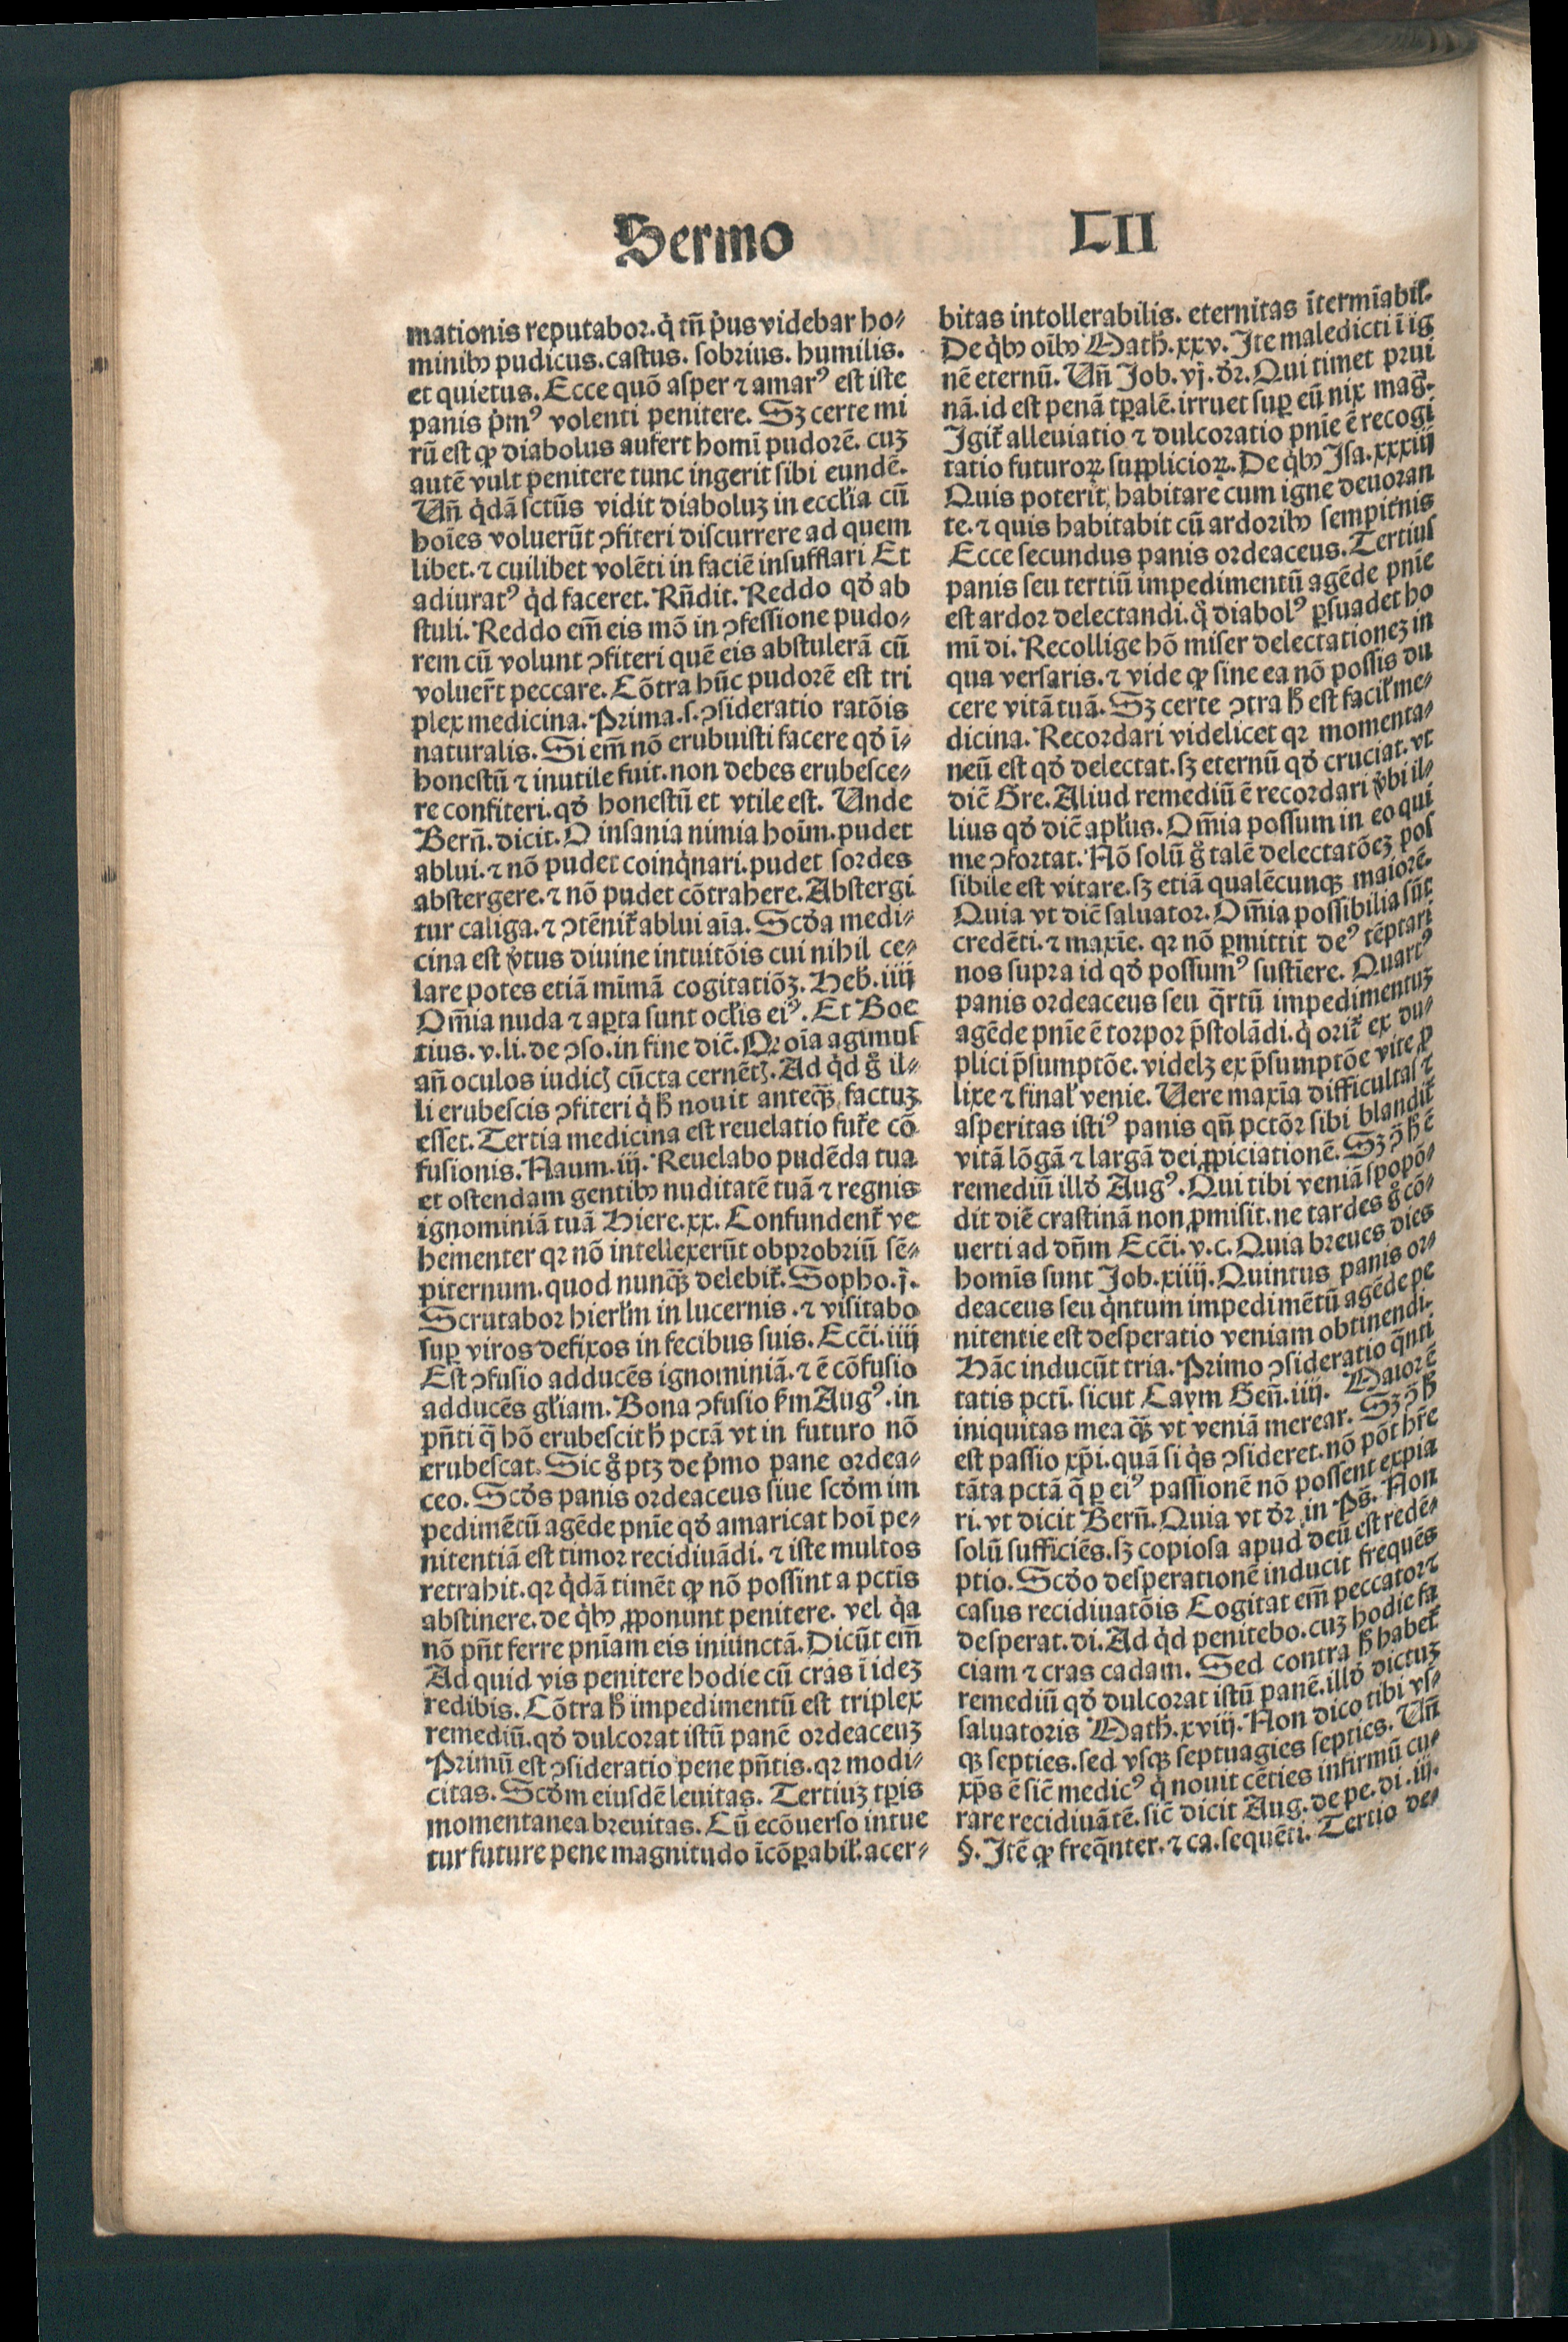 Sermo LII
mationis reputabor. q̇ tñ ṗus videbar ho⸗
minibꝰ pudicus. castus. sobrius. humilis.
et quietus. Ecce quō asper ⁊ amarꝰ est iste
panis ṗmꝰ volenti penitere. Sꝫ certe mi
rū est ꝙ diabolus aufert homī pudorē. cuꝫ
autē vult penitere tunc ingerit sibi eundē.
Uñ q̇dā sctūs vidit diaboluꝫ in ecclīa cū
hoīes voluerūt ↄfiteri discurrere ad quem
libet. ⁊ cuilibet volēti in faciē insufflari Et
adiuratꝰ q̇d faceret. Rūdit. Reddo qđ ab
stuli. Reddo em̄ eis mō in ↄfessione pudo⸗
rem cū volunt ↄfiteri quē eis abstulerā cū
voluer̄t peccare. Cōtra hūc pudorē est tri
plex medicina. Prima. s. ↄsideratio ratōis
naturalis. Si em̄ nō erubuisti facere qđ i⸗
honestū ⁊ inutile fuit. non debes erubesce⸗
re confiteri. qđ honestū et vtile est. Unde
Berñ. dicit. O insania nimia hoīm. pudet
ablui. ⁊ nō pudet coinq̇nari. pudet sordes
abstergere. ⁊ nō pudet cōtrahere. Abstergi
tur caliga. ⁊ ↄtēnit̄ ablui aīa. Scđa medi⸗
cina est v̇tus diuine intuitōis cui nihil ce⸗
lare potes etiā mīmā cogitatiōꝫ. Heb̄. iiij
Om̄ia nuda ⁊ aꝑta sunt ocl̄is eiꝰ. Et Boe
tius. v. li. de ↄso. in fine dic̄. Qꝛ oīa agimus
añ oculos iudicꝭ cūcta cernētꝭ. Ad q̇d g̊ il⸗
li erubescis ↄfiteri q̇ ħ nouit anteqꝫ̄ factuꝫ
esset. Tertia medicina est reuelatio fut̄e cō
fusionis. Naum. iij. Reuelabo pudēda tua
et ostendam gentibꝰ nuditatē tuā ⁊ regnis
ignominiā tuā Hiere. xx. Confundent̄ ve
hementer qꝛ nō intellexerūt obprobriū sē⸗
piternum. quod nunqꝫ̄ delebit̄. Sopho. j.
Scrutabor hierl̄m in lucernis. ⁊ visitabo
suꝑ viros defixos in fecibus suis. Ecc̄i. iiij
Est ↄfusio adducēs ignominiā. ⁊ ē cōfusio
adducēs gl̄iam. Bona ↄfusio ẜm Augꝰ. in
pñti q̄ hō erubescit ħ pctā vt in futuro nō
erubescat. Sic g̊ ptꝫ de ṗmo pane ordea⸗
ceo. Scđs panis ordeaceus siue scđm im
pedimētū agēde pnīe qđ amaricat hoī pe⸗
nitentiā est timor recidiuādi. ⁊ iste multos
retrahit. qꝛ q̇dā timēt ꝙ nō possint a pctīs
abstinere. de q̇bꝰ ꝓponunt penitere. vel q̇a
nō pñt ferre pnīam eis iniunctā. Dicūt em̄
Ad quid vis penitere hodie cū cras ī ideꝫ
redibis. Cōtra ħ impedimentū est triplex
remediū. qđ dulcorat istū panē ordeaceuꝫ
Primū est ↄsideratio pene pñtis. qꝛ modi⸗
citas. Scđm eiusdē leuitas. Tertiuꝫ tꝑis
momentanea breuitas. Cū ecōuerso intue
tur future pene magnitudo īcōꝑabil̄. acer⸗
bitas intollerabilis. eternitas īterm̄iabil̄.
De q̇bꝰ oībꝰ Math̄. xxv. Ite maledicti ī ig
nē eternū. Uñ Job. vj. đr. Qui timet prui
nā. id est penā tꝑalē. irruet suꝑ eū nix maḡ.
Igit̄ alleuiatio ⁊ dulcoratio pnīe ē recogi
tatio futuroꝝ supplicioꝝ. De q̇bꝰ Isa. xxxiij
Quis poterit habitare cum igne deuoran
te. ⁊ quis habitabit cū ardoribꝰ sempit̄nis
Ecce secundus panis ordeaceus. Tertius
panis seu tertiū impedimentū agēde pnīe
est ardor delectandi. q̊ diabolꝰ ꝑsuadet ho
mī di. Recollige hō miser delectationeꝫ in
qua versaris. ⁊ vide ꝙ sine ea nō possis du
cere vitā tuā. Sꝫ certe ↄtra ħ est facil̄ me⸗
dicina. Recordari videlicet qꝛ momenta⸗
neū est qđ delectat. sꝫ eternū qđ cruciat. vt
dic̄ Gre. Aliud remediū ē recordari v̇bi il⸗
lius qđ dic̄ apl̄us. Om̄ia possum in eo qui
me ↄfortat. Nō solū g̊ talē delectatōeꝫ pos
sibile est vitare. sꝫ etiā qualēcunqꝫ maiorē.
Quia vt dic̄ saluator. Om̄ia possibilia sūt
credēti. ⁊ maxīe. qꝛ nō ꝑmittit deꝰ tēptari
nos supra id qđ possumꝰ sustīere. Quartꝰ
panis ordeaceus seu q̄rtū impedimentuꝫ
agēde pnīe ē torpor p̄stolādi. q̇ orit̄ ex du⸗
plici p̄sumptōe. videlꝫ ex p̄sumptōe vite ꝓ
lixe ⁊ final̄ venie. Uere maxīa difficultas ⁊
asperitas istiꝰ panis qñ pctōr sibi blandit̄
vitā lōgā ⁊ largā dei ꝓpiciationē. Sꝫ ↄ̄ ħ ē
remediū illđ Augꝰ. Qui tibi veniā spopō⸗
dit diē crastinā non ꝓmisit. ne tardes g̊ cō⸗
uerti ad dñm Ecc̄i. v. c. Quia breues dies
homīs sunt Job. xiiij. Quintus panis or⸗
deaceus seu q̇ntum impedimētū agēde pe
nitentie est desperatio veniam obtinendi.
Hāc inducūt tria. Primo ↄsideratio q̄nti
tatis pctī. sicut Caym Geñ. iiij. Maior ē
iniquitas mea qꝫ̄ vt veniā merear. Sꝫ ↄ̄ ħ
est passio xp̄i. quā si q̇s ↄsideret. nō pōt hr̄e
tāta pctā q̄ ꝑ eiꝰ passionē nō possent expia
ri. vt dicit Berñ. Quia vt đr in Ps̄. Non
solū sufficiēs. sꝫ copiosa apud deū est redē⸗
ptio. Scđo desperationē inducit frequēs
casus recidiuatōis Cogitat em̄ peccator ⁊
desperat. di. Ad q̇d penitebo. cuꝫ hodie fa
ciam ⁊ cras cadam. Sed contra ħ habet̄
remediū qđ dulcorat istū panē. illđ dictuꝫ
saluatoris Math̄. xviij. Non dico tibi vs⸗
qꝫ septies. sed vsqꝫ septuagies septies. Uñ
xp̄s ē sic̄ medicꝰ q̇ nouit cēties infirmū cu⸗
rare recidiuātē. sic̄ dicit Aug. de pe. di. iij.
§. Itē ꝙ freq̄nter. ⁊ ca. sequēti. Tertio de⸗